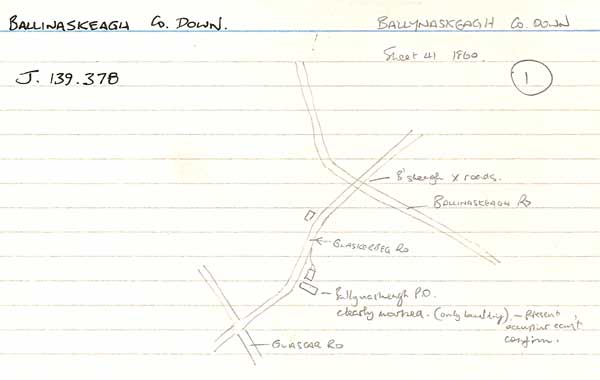 BALLINASKEAGH Co. DOWN.
BALLYNASKEAGH Co. DOWN
Sheet 41 1860.
J. 139.378
1
B'skeagh X roads.
BALLINASKEAGH RD
GLASKERBEG RD
Ballynaskeagh P.O.
clearly marked. (only building). – present
occupier can't
confirm.
GLASCAR RD